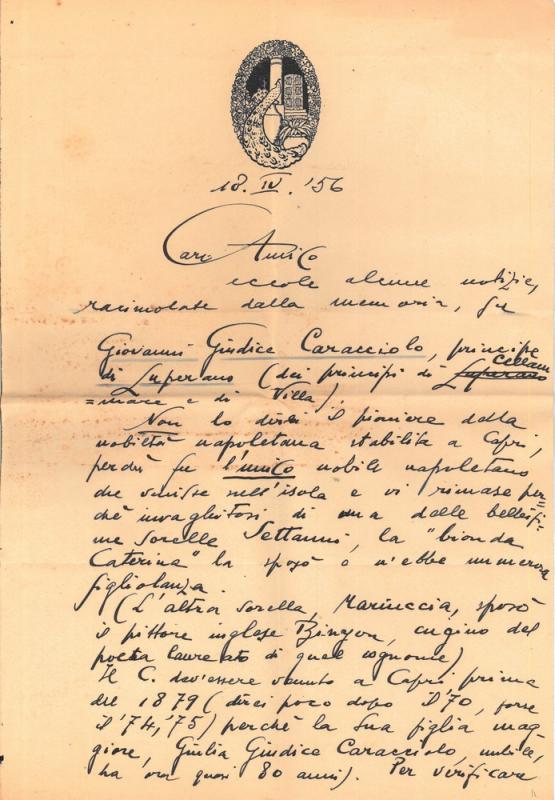 18. IV. '56
Caro Amico
eccole alcune notizie,
racimolate dalla memoria, su
Giovanni Giudice Caracciolo, principe
di Luperano (dei principi di Luperano Cellam=
=mare e di Villa).
Non lo direi il pioniere della
nobiltà napoletana stabilita a Capri,
perché fu l'unico nobile napoletano
che venisse nell'isola e vi rimase per=
ché invaghitosi di una delle bellissi=
me sorelle Settanni, la "bionda
Caterina" la sposò e n'ebbe numerosa
figliolanza.
(L'altra sorella, Mariuccia, sposò
il pittore inglese Binyon, cugino del
poeta laureato di quel cognome)
Il C. dev'essere venuto a Capri prima
del 1879 (direi poco dopo il '70, forse
il '74, '75) perchè la sua figlia mag=
giore, Giulia Giudice Caracciolo, nubile,
ha ora quasi 80 anni). Per verificare